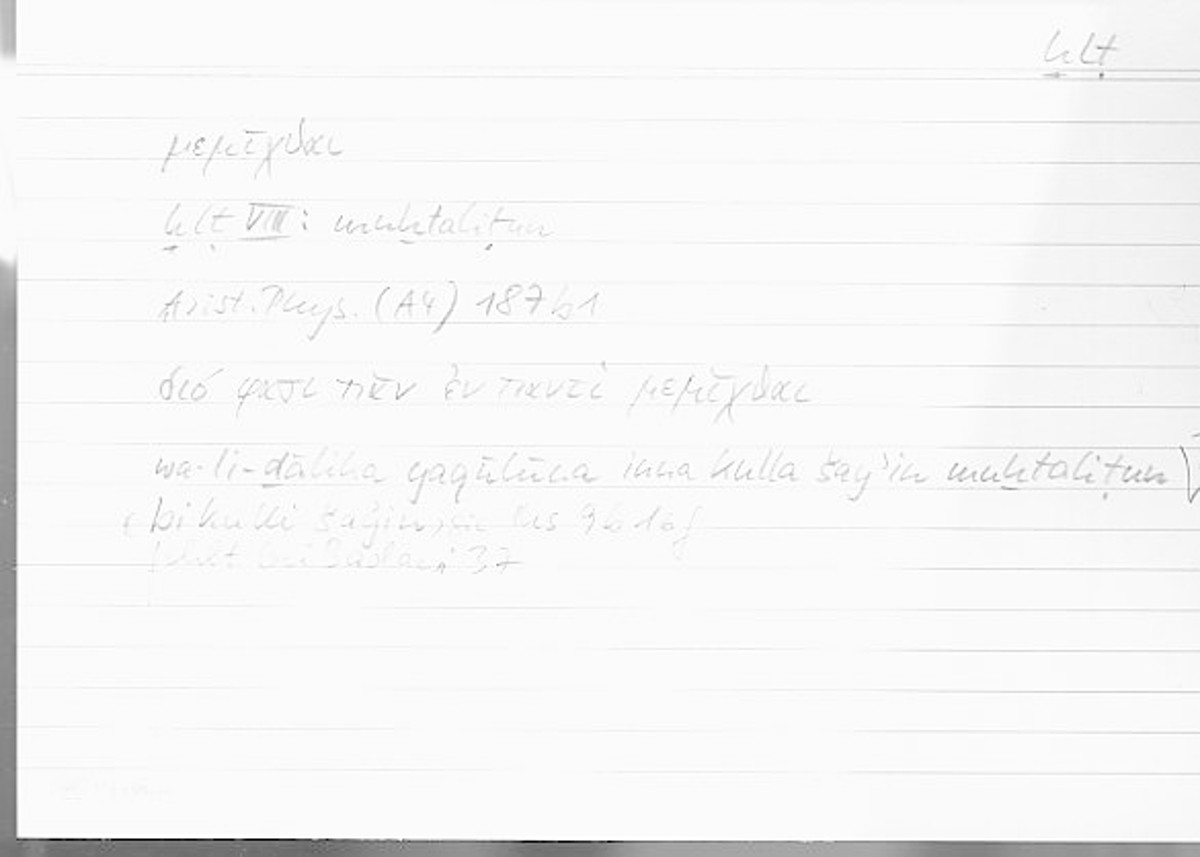 ḫlṭ
μεμῖχθαι
ḫlṭ VIII: muḫtaliṭun
Arist. Phys. (A4) 187b1
διό φασι πᾶν ἐν παντὶ μεμῖχθαι
wa-li-ḏālika yaqūlūna inna kulla šay'in muḫtaliṭun
bi kulli šay'in 9b16f
37